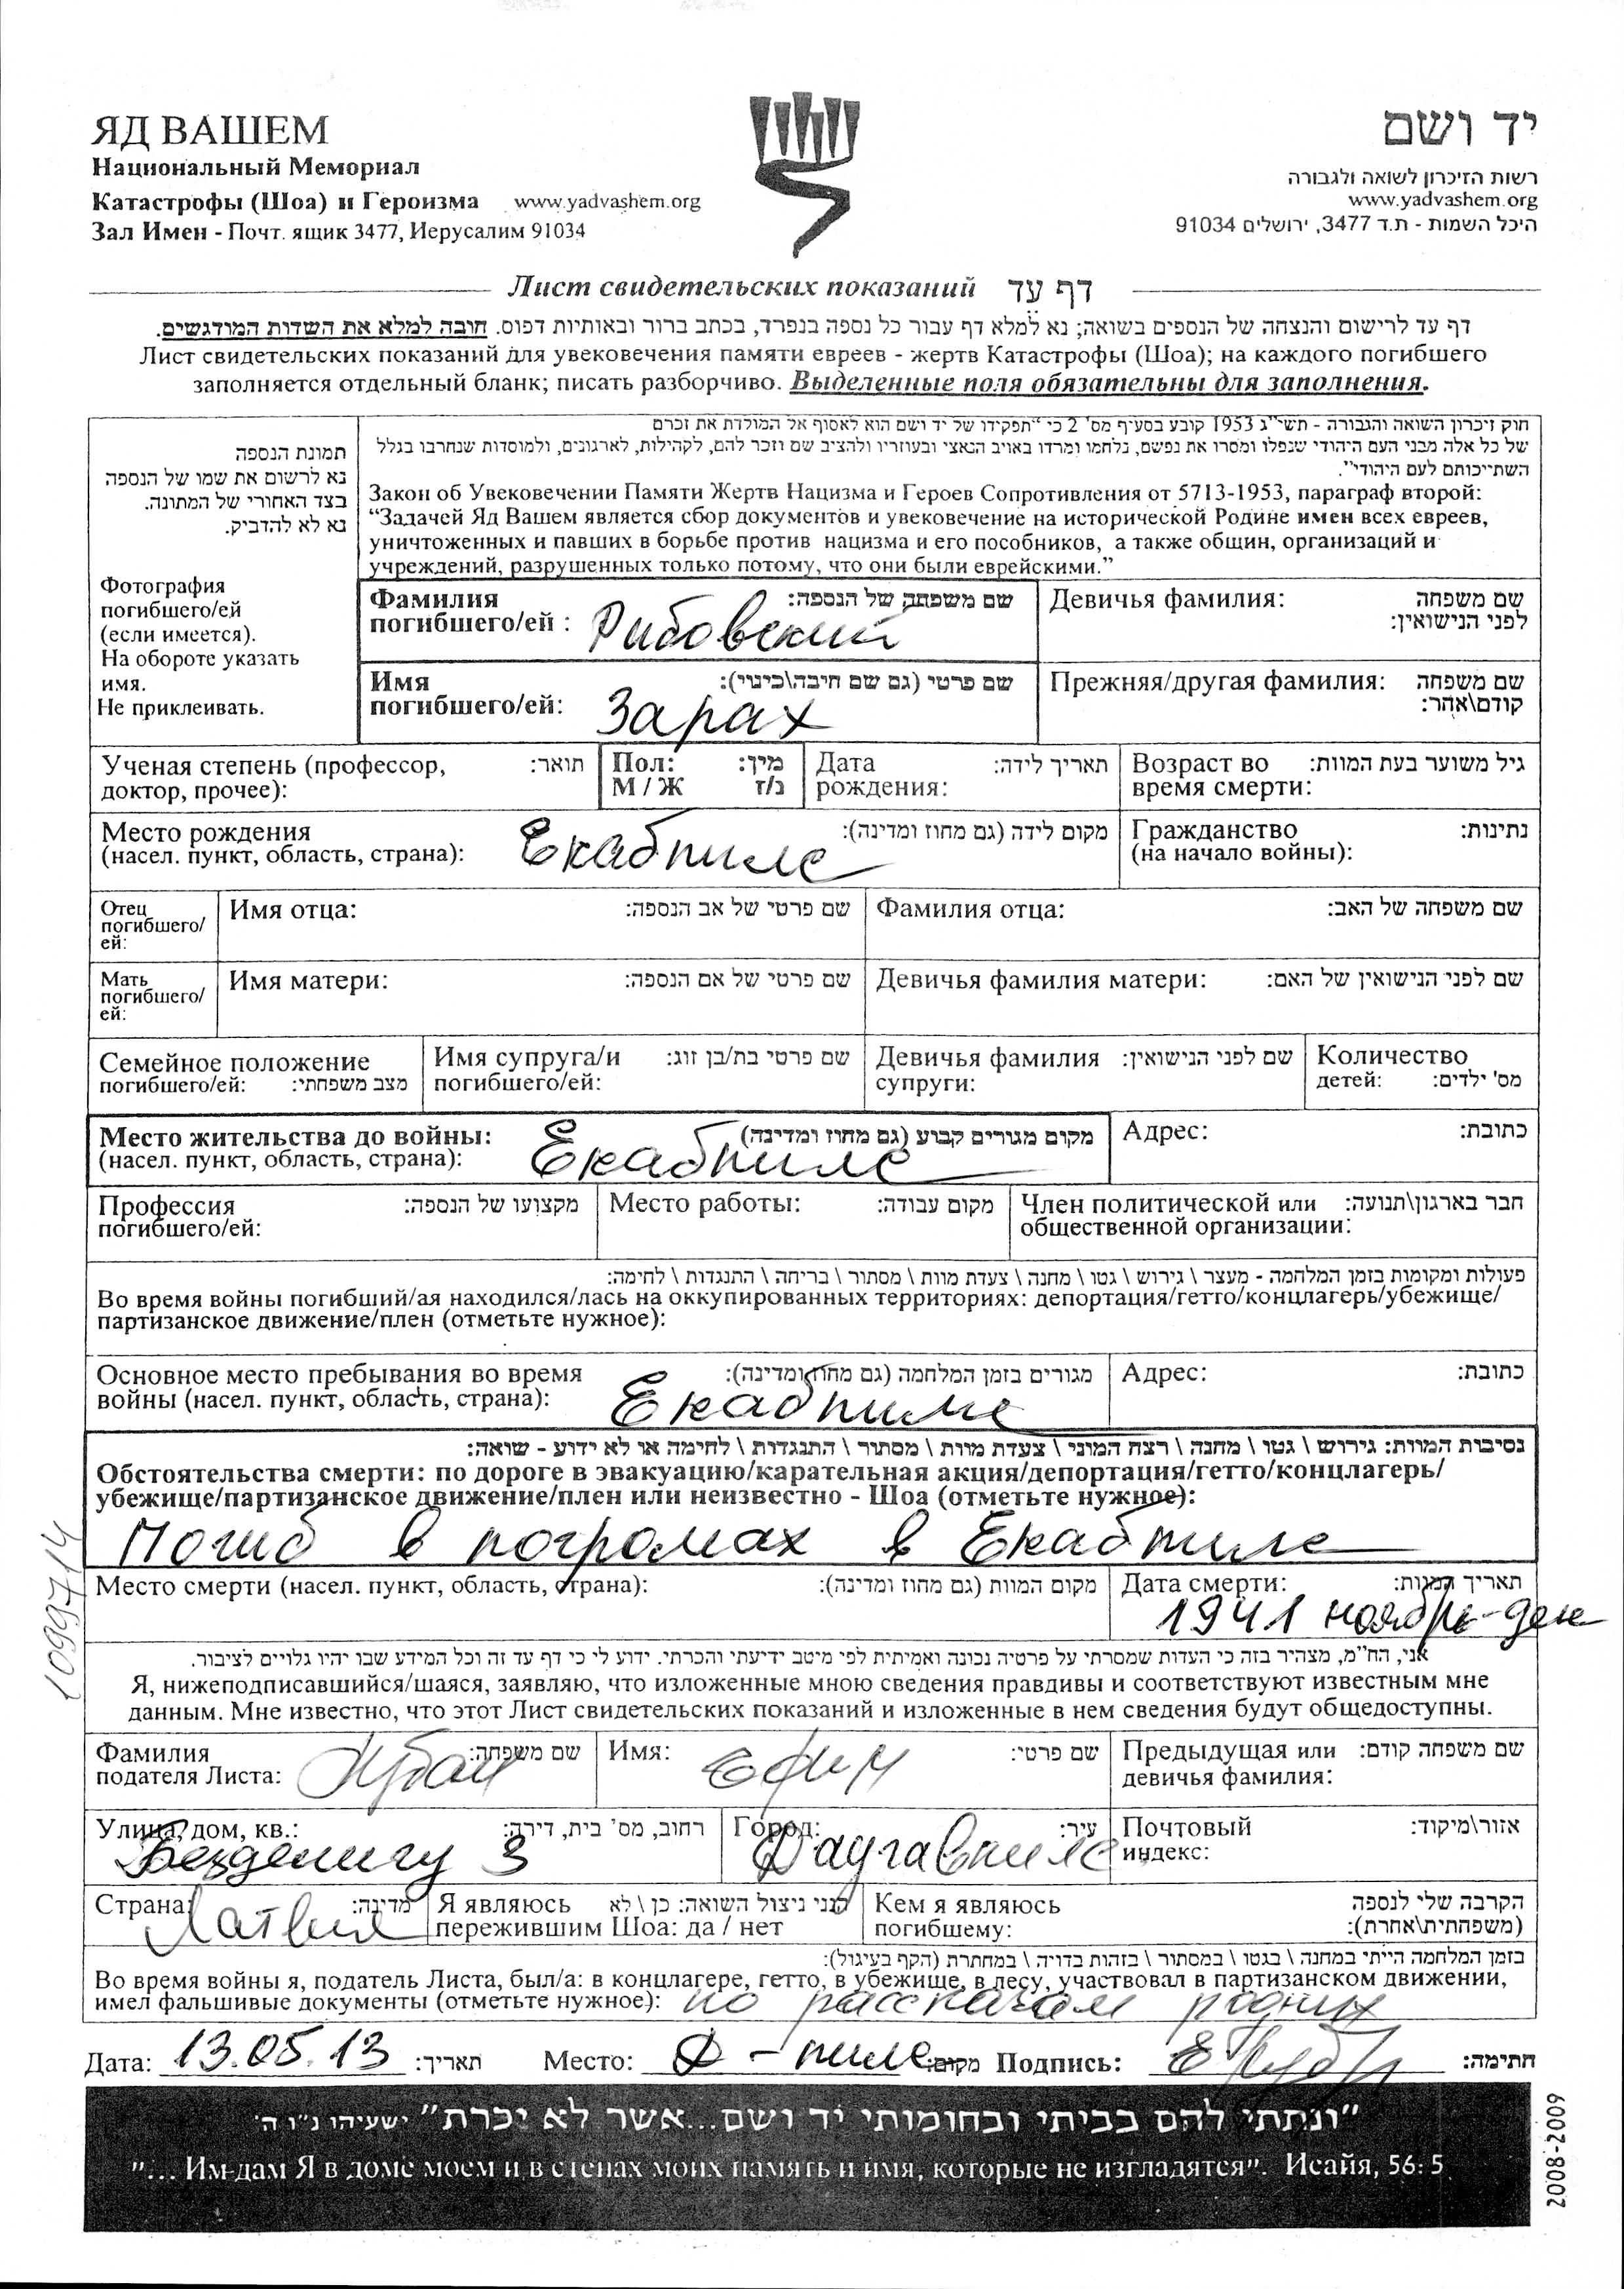 ЯД ВАШЕМ
Национальный Мемориал
Катастрофы (Шоа) и Героизма www.yadvashem.org
Зал Имен - Почт. ящик 3477, Иерусалим 91034
יד ושם
רשות הזיכרון לשואה ולגבורה
www.yadvashem.org
היכל השמות - ת.ד 3477, ירושלים 91034
Лист свидетельских показаний דף עד
דף עד לרישום והנצחה של הנספים בשואה; נא למלא דף עבור כל נספה בנפרד, בכתב ברור ובאותיות דפוס. חובה למלא את השדות המודגשים.
Лист свидетельских показаний для увековечения памяти евреев - жертв Катастрофы (Шоа); на каждого погибшего
заполняется отдельный бланк; писать разборчиво. Выделенные поля обязательны для заполнения.
תמונת הנספה
נא לרשום את שמו של הנספה
בצד האחורי של המתונה.
נא לא להדביק.
Фотография
погибшего/ей
(если имеется).
На обороте указать
имя.
Не приклеивать.
חוק זיכרון השואה והגבורה - תשי"ג 1953 קובע בסעיף מס' 2 כי "תפקידו של יד ושם הוא לאסוף אל המולדת את זכרם
של כל אלה מבני העם היהודי שנפלו ומסרו את נפשם, נלחמו ומרדו באויב הנאצי ובעוזריו ולהציב שם וזכר להם, לקהילות, לארגונים, ולמוסדות שנחרבו בגלל
השתייכותם לעם היהודי".
Закон об Увековечении Памяти Жертв Нацизма и Героев Сопротивления от 5713-1953, параграф второй:
“Задачей Яд Вашем является сбор документов и увековечение на исторической Родине имен всех евреев,
уничтоженных и павших в борьбе против нацизма и его пособников, а также общин, организаций и
учреждений, разрушенных только потому, что они были еврейскими.”
Фамилия שם משפחה של הנספה:
погибшего/ей : Рибовский
Девичья фамилия: שם משפחה
לפני הנישואין:
Имя שם פרטי (גם שם חיבה\כינוי):
погибшего/ей: Зарах
Прежняя/другая фамилия: שם משפחה
קודם\אחר:
Ученая степень (профессор, תואר:
доктор, прочее):
Пол: מין:
М / Ж ז/נ
Дата תאריך לידה:
рождения:
Возраст во גיל משוער בעת המוות:
время смерти:
Место рождения מקום לידה (גם מחוז ומדינה):
(насел. пункт, область, страна): Екабпилс
Гражданство נתינות:
(на начало войны):
Отец
погибшего/
ей:
Имя отца: שם פרטי של אב הנספה:
Фамилия отца: שם משפחה של האב:
Мать
погибшего/
ей:
Имя матери: שם פרטי של אם הנספה:
Девичья фамилия матери: שם לפני הנישואין של האם:
Семейное положение
погибшего/ей: מצב משפחתי:
Имя супруга/и שם פרטי בת/בן זוג:
погибшего/ей:
Девичья фамилия שם לפני הנישואין:
супруги:
Количество
детей: מס' ילדים:
Место жительства до войны: מקום מגורים קבוע (גם מחוז ומדינה)
(насел. пункт, область, страна): Екабпилс
Адрес: כתובת:
Профессия מקצועו של הנספה:
погибшего/ей:
Место работы: מקום עבודה:
Член политической или חבר בארגון\תנועה:
общественной организации:
פעולות ומקומות בזמן המלחמה - מעצר \ גירוש \ גטו \ מחנה \ צעדת מוות \ מסתור \ בריחה \ התנגדות \ לחימה:
Во время войны погибший/ая находился/лась на оккупированных территориях: депортация/гетто/концлагерь/убежище/
партизанское движение/плен (отметьте нужное):
Основное место пребывания во время מגורים בזמן המלחמה (גם מחוז ומדינה):
войны (насел. пункт, область, страна): Екабпилс
Адрес: כתובת:
נסיבות המוות: גירוש \ גטו \ מחנה \ רצח המוני \ צעדת מוות \ מסתור \ התנגדות \ לחימה או לא ידוע - שואה:
Обстоятельства смерти: по дороге в эвакуацию/карательная акция/депортация/гетто/концлагерь/
убежище/партизанское движение/плен или неизвестно - Шоа (отметьте нужное):
Погиб в погромах в Екабпилс
Место смерти (насел. пункт, область, страна): מקום המוות (גם מחוז ומדינה):
Дата смерти: תאריך המוות:
1941 ноябрь-дек
1099714
אני, הח"מ, מצהיר בזה כי העדות שמסרתי על פרטיה נכונה ואמיתית לפי מיטב ידיעתי והכרתי. ידוע לי כי דף עד זה וכל המידע שבו יהיו גלויים לציבור.
Я, нижеподписавшийся/шаяся, заявляю, что изложенные мною сведения правдивы и соответствуют известным мне
данным. Мне известно, что этот Лист свидетельских показаний и изложенные в нем сведения будут общедоступны.
Фамилия שם משפחה:
подателя Листа:
Имя: Ефим שם פרטי:
Предыдущая или שם משפחה קודם:
девичья фамилия:
Улица, дом, кв.: רחוב, מס' בית, דירה:
3
Город: Даугавпилс עיר:
Почтовый אזור\מיקוד:
индекс:
Страна: Латвия מדינה:
Я являюсь הנני ניצול השואה: כן \ לא
пережившим Шоа: да / нет
Кем я являюсь הקרבה שלי לנספה
погибшему: (משפחתית\אחרת):
בזמן המלחמה הייתי במחנה \ בגטו \ במסתור \ בזהות בדויה \ במחתרת (הקף בעיגול):
Во время войны я, податель Листа, был/а: в концлагере, гетто, в убежище, в лесу, участвовал в партизанском движении,
имел фальшивые документы (отметьте нужное): по рассказам родных
Дата: 13.05.13 תאריך: Место: Д-пилс מקום: Подпись: חתימה:
"ונתתי להם בביתי ובחומותי יד ושם...אשר לא יכרת" ישעיהו נ"ו ה'
"... Им дам Я в доме моем и в стенах моих память и имя, которые не изгладятся". Исайя, 56: 5
2008-2009